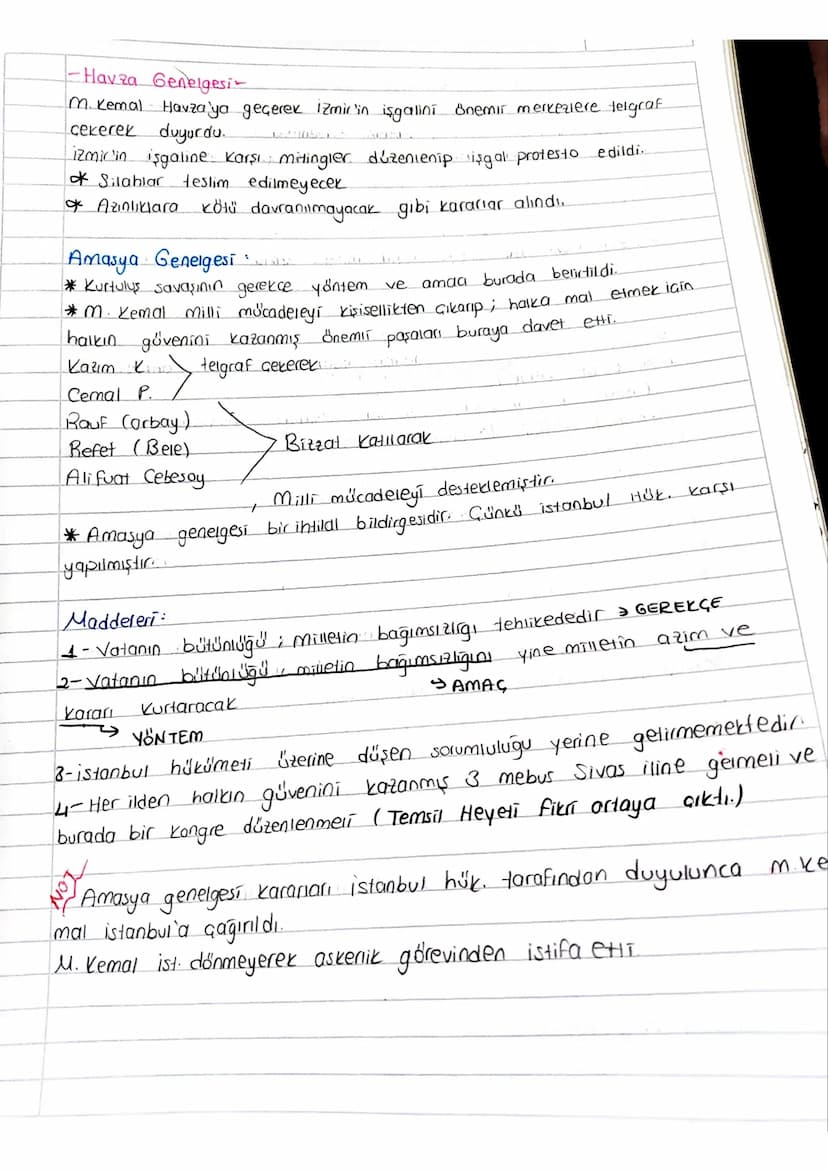 -Havza Genelgesi-
M. Kemal Havza'ya geçerek izmir'in işgalini önemli merkezlere telgraf
çekerek duyurdu.
izmir'in işgaline karşı mitingler düzenlenip işgal protesto edildi.
* Silahlar teslim edilmeyecek
* Azınlıklara kötü davranılmayacak gibi kararlar alındı.
Amasya Genelgesi:
* Kurtuluş savaşının gerekçe yöntem ve amacı burada belirtildi.
* M. Kemal milli mücadeleyi kişisellikten çıkarıp; halka mal etmek için
halkın güvenini kazanmış önemli paşaları buraya davet etti.
Kazım K.
telgraf çekerek
Cemal P.
Rauf (orbay)
Refet (Bele)
Bizzat katılarak
Ali fuat Cebesoy
, Milli mücadeleyi desteklemiştir.
* Amasya genelgesi bir ihtilal bildirgesidir. Çünkü istanbul Hük. karşı
yapılmıştır.
Maddeleri:
1- Vatanın bütünlüğü; milletin bağımsızlığı tehlikededir → GEREKÇE
2- Vatanın bütünlüğü, milletin bağımsızlığını yine milletin azim ve
↪ AMAÇ
kararı kurtaracak
↪ YÖNTEM
3- istanbul hükümeti üzerine düşen sorumluluğu yerine getirmemektedir.
4- Her ilden halkın güvenini kazanmış 3 mebus Sivas iline gelmeli ve
burada bir kongre düzenlenmeli (Temsil Heyeti fikri ortaya çıktı.)
NOT
Amasya genelgesi kararları istanbul hük. tarafından duyulunca m. ke
mal istanbul'a çağırıldı.
M. Kemal ist. dönmeyerek askerlik görevinden istifa etti